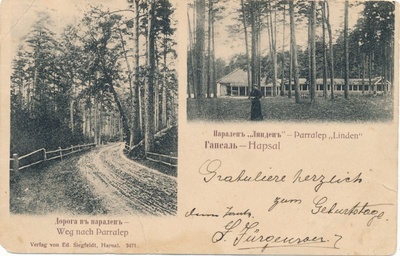 Паралепъ „Линденъ“ — Parralep „Linden“
Гапсаль — Hapsal
Gratuliere herzlich
zum Geburtstage
Дорога въ паралепъ —
Weg nach Parralep
Verlag von Ed. Siegfeldt, Hapsal.